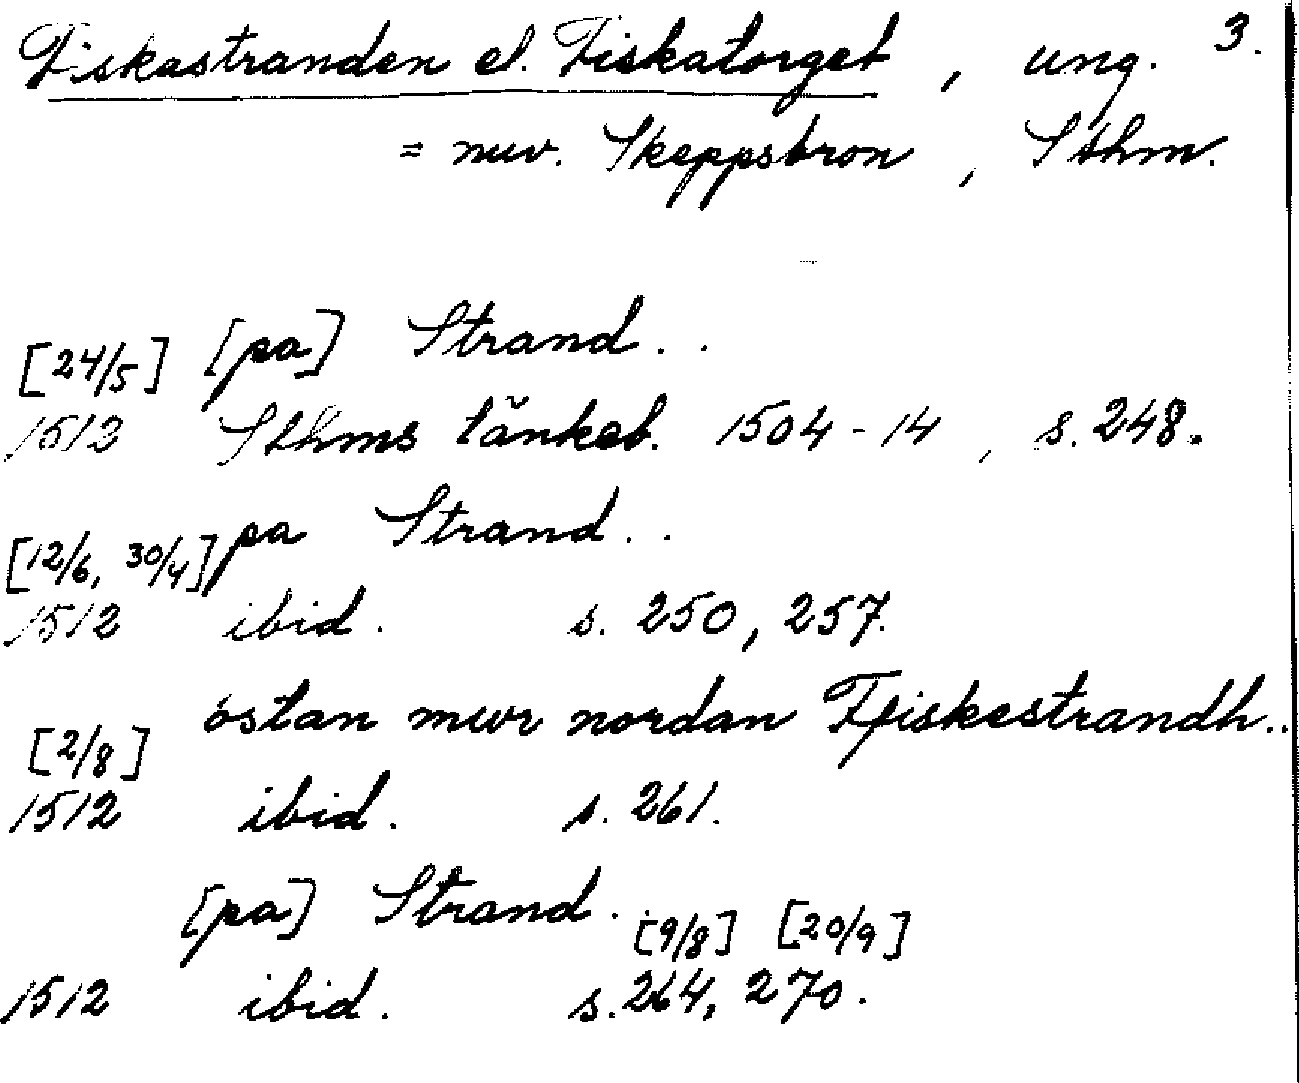 Fiskastranden el. Fiskatorget, ung. 3.
= nuv. Skeppsbron, Sthm.
[24/5] [pa] Strand..
1512 Sthms tänkeb. 1504-14, s. 248.
[12/6, 30/4] pa Strand..
1512 ibid. s. 250, 257.
[2/8] östan mwr nordan Ffiskestrandh..
1512 ibid. s. 261.
[pa] Strand.. [9/8] [20/9]
1512 ibid. s. 264, 270.